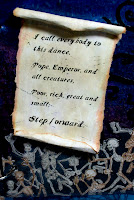 I call everybody to
this dance.
Pope, Emperor, and
all creatures.
Poor, rich, great and
small.
Step forward.